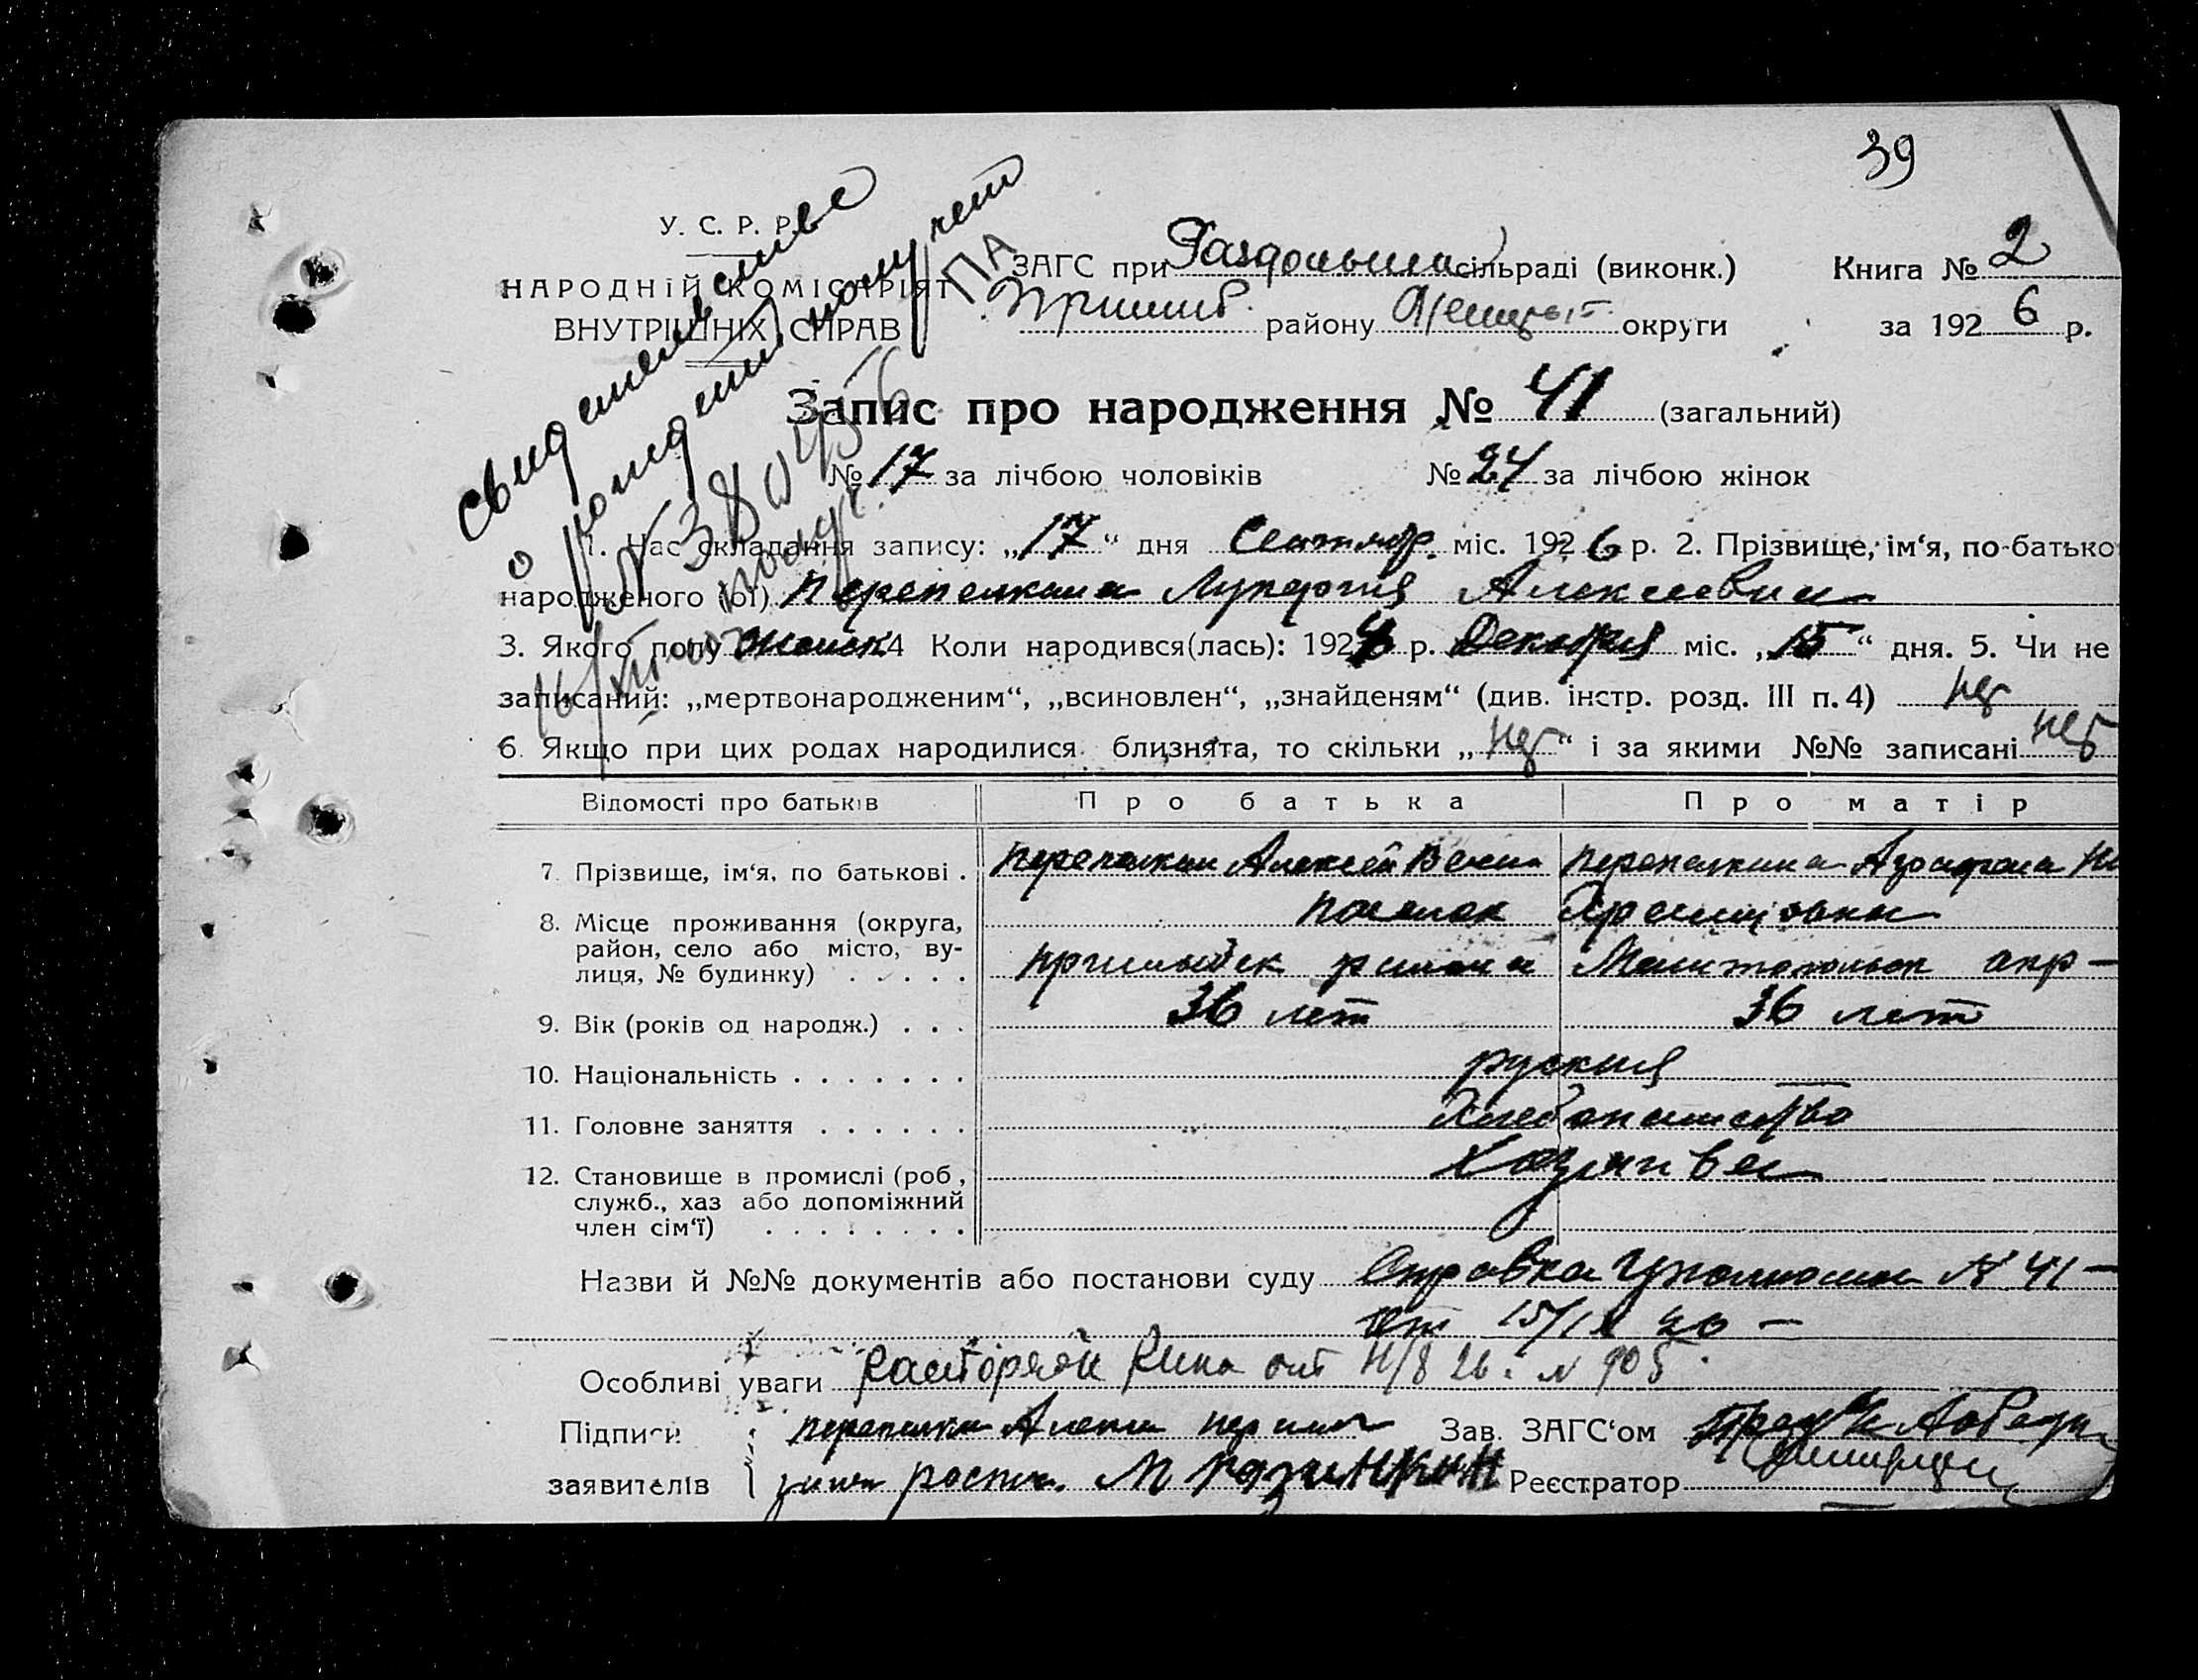 39
У. С. Р. Р.
НАРОДНІЙ КОМІСАРІЯТ
ВНУТРІШНІХ СПРАВ
свидетельство
о рождении получет
№ 380456
ЗАГС при сільраді (виконк.)
Пришиб. району округи
Книга № 2
за 1926 р.
Запис про народження № 41 (загальний)
№ 17 за лічбою чоловіків № 24 за лічбою жінок
1. Час складання запису: „17“ дня Сентябр. міс. 1926 р. 2. Прізвище, ім‘я, по-батько
народженого (ої) Перепелкина Лукерия Алексеевна
3. Якого полу женск 4 Коли народився(лась): 192 р. Декабря міс. „15“ дня. 5. Чи не
записаний: „мертвонародженим“, „всиновлен“, „знайденям“ (див. інстр. розд. III п. 4)
6. Якщо при цих родах народилися близнята, то скільки „ “ і за якими №№ записані
Відомості про батьків Про батька Про матір
7. Прізвище, ім‘я, по батькові . Перепелкин Алексей Перепелкина
8. Місце проживання (округа, район, село або місто, вулиця, № будинку) . . . . . поселок
района Мелитопольск окр—
9. Вік (років од народж.) . . . 36 лет 36 лет
10. Національність . . . . . . . руския
11. Головне заняття . . . . . . Хлебопашество
12. Становище в промислі (роб., служб., хаз або допоміжний член сім‘ї) . . . . . . . . Хозяин
Назви й №№ документів або постанови суду Справка № 41 —
от 15/IX 26 —
Особливі уваги от 26. № 905
Підписи Зав. ЗАГС‘ом
заявителів М Реєстратор